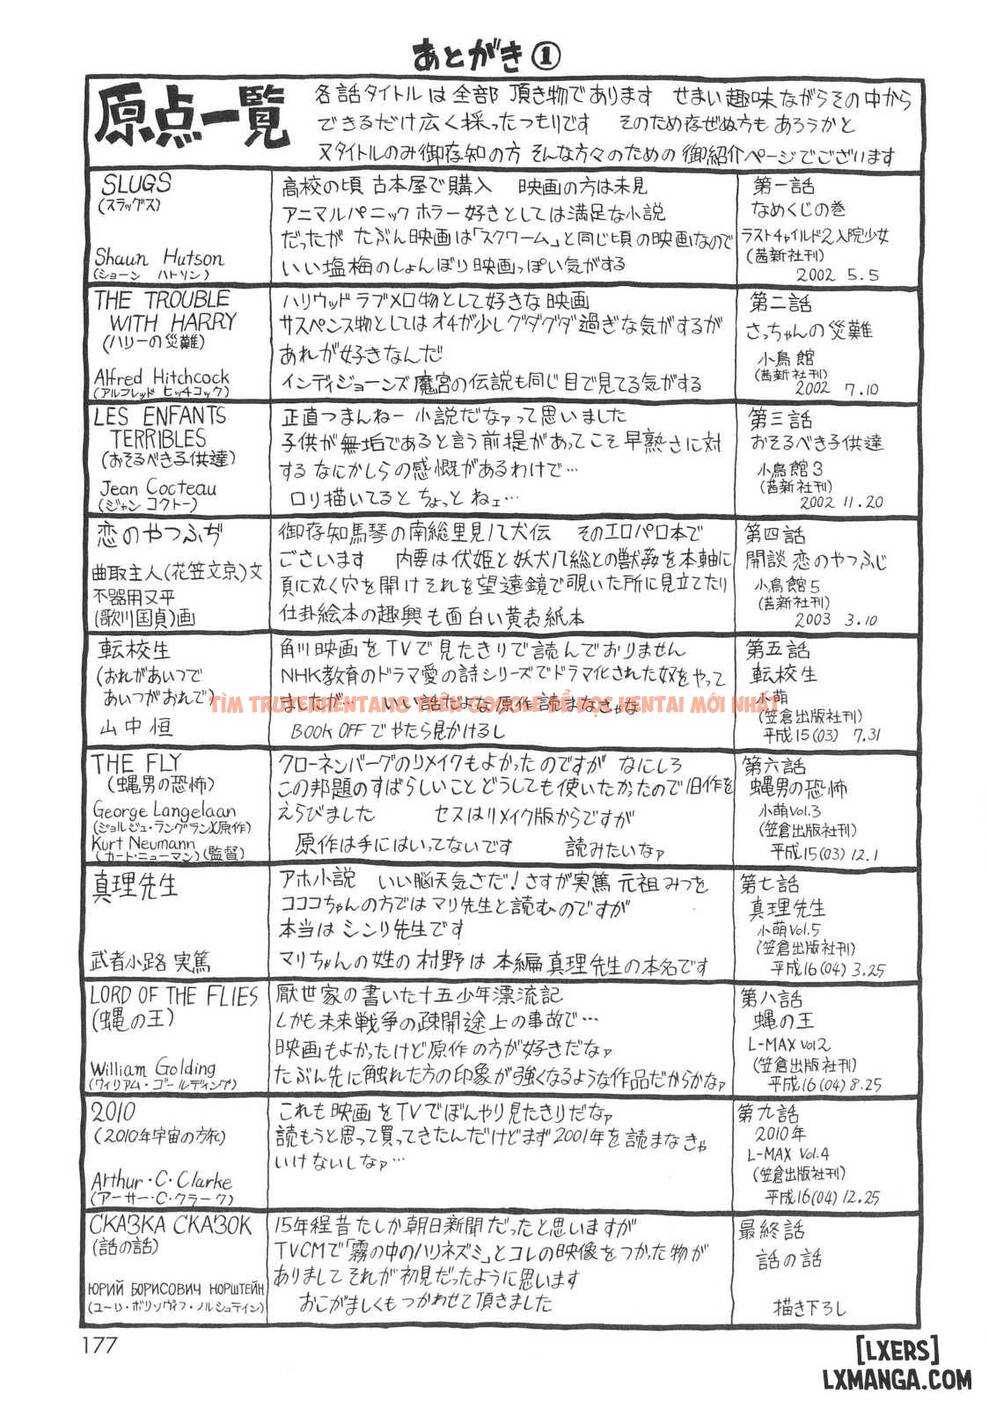 あとがき①
原点一覧
各話タイトルは全部 頂き物であります せまい趣味ながらその中から
できるだけ広く採ったつもりです そのため存ぜぬ方もあろうかと
又タイトルのみ御存知の方 そんな方々のための御紹介ページでございます
SLUGS
(スラッグス)
Shaun Hutson
(ショーン ハトソン)
高校の頃 古本屋で購入 映画の方は未見
アニマルパニックホラー好きとしては満足な小説
だったが たぶん映画は「スクワーム」と同じ頃の映画なので
いい塩梅のしょんぼり映画っぽい気がする
第一話
なめくじの巻
ラストチャイルド2入院少女
(茜新社刊)
2002 5.5
THE TROUBLE
WITH HARRY
(ハリーの災難)
Alfred Hitchcock
(アルフレッド ヒッチコック)
ハリウッドラブメロ物として好きな映画
サスペンス物としてはオチが少しグダグダ過ぎな気がするが
あれが好きなんだ
インディジョーンズ魔宮の伝説も同じ目で見てる気がする
第二話
さっちゃんの災難
小鳥館
(茜新社刊)
2002 7.10
LES ENFANTS
TERRIBLES
(おそるべき子供達)
Jean Cocteau
(ジャン コクトー)
正直つまんねー小説だなァって思いました
子供が無垢であると言う前提があってこそ早熟さに対
するなにかしらの感慨があるわけで…
ロリ描いてるとちょっとねェ…
第三話
おそるべき子供達
小鳥館3
(茜新社刊)
2002 11.20
恋のやつふぢ
曲取主人(花笠文京)文
不器用又平
(歌川国貞)画
御存知馬琴の南総里見八犬伝 そのエロパロ本で
ございます 内要は伏姫と妖犬八総との獣姦を本軸に
頁に丸く穴を開けそれを望遠鏡で覗いた所に見立てたり
仕掛絵本の趣興も面白い黄表紙本
第四話
開談 恋のやつふじ
小鳥館5
(茜新社刊)
2003 3.10
転校生
(おれがあいつで
あいつがおれで)
山中恒
角川映画をTVで見たきりで読んでおりません
NHK教育のドラマ愛の詩シリーズでドラマ化された奴をやって
ましたが… いい話だよな 原作読まなきゃな
BOOK OFFでやたら見かけるし
第五話
転校生
小萌
(笠倉出版社刊)
平成15(03) 7.31
TÌM TRUYENHENTANG TRÊN GOOGLE ĐỂ ĐỌC HENTAI MỚI NHẤT
THE FLY
(蝿男の恐怖)
George Langelaan
(ジョルジュ・ランブラン)(原作)
Kurt Neumann
(カート・ニューマン)(監督)
クローネンバーグのリメイクもよかったのですが なにしろ
この邦題のすばらしいこと どうしても使いたかったので旧作を
えらびました セスはリメイク版からですが
原作は手にはいってないです 読みたいなァ
第六話
蝿男の恐怖
小萌Vol.3
(笠倉出版社刊)
平成15(03) 12.1
真理先生
武者小路 実篤
アホ小説 いい脳天気さだ！さすが実篤 元祖みつを
コココちゃんの方ではマリ先生と読むのですが
本当はシンリ先生です
マリちゃんの姓の村野は本編真理先生の本名です
第七話
真理先生
小萌Vol.5
(笠倉出版社刊)
平成16(04) 3.25
LORD OF THE FLIES
(蝿の王)
William Golding
(ウィリアム・ゴールディング)
厭世家の書いた十五少年漂流記
しかも未来戦争の疎開途上の事故で…
映画もよかったけど原作の方が好きだなァ
たぶん先に触れた方の印象が強くなるような作品だからかなァ
第八話
蝿の王
L-MAX Vol2
(笠倉出版社刊)
平成16(04) 8.25
2010
(2010年宇宙の旅)
Arthur・C・Clarke
(アーサー・C・クラーク)
これも映画をTVでぼんやり見たきりだなァ
読もうと思って買ってきたんだけどまず2001年を読まなきゃ
いけないしなァ…
第九話
2010年
L-MAX Vol.4
(笠倉出版社刊)
平成16(04) 12.25
СКАЗКА СКАЗОК
(話の話)
ЮРИЙ БОРИСОВИЧ НОРШТЕЙН
(ユーリ・ボリソヴィフ・ノルシュテイン)
15年程昔たしか朝日新聞だったと思いますが
TVCMで「霧の中のハリネズミ」とコレの映像をつかった物が
ありまして それが初見だったように思います
おこがましくもつかわせて頂きました
最終話
話の話
描き下ろし
177
[LXERS]
LXMANGA.COM